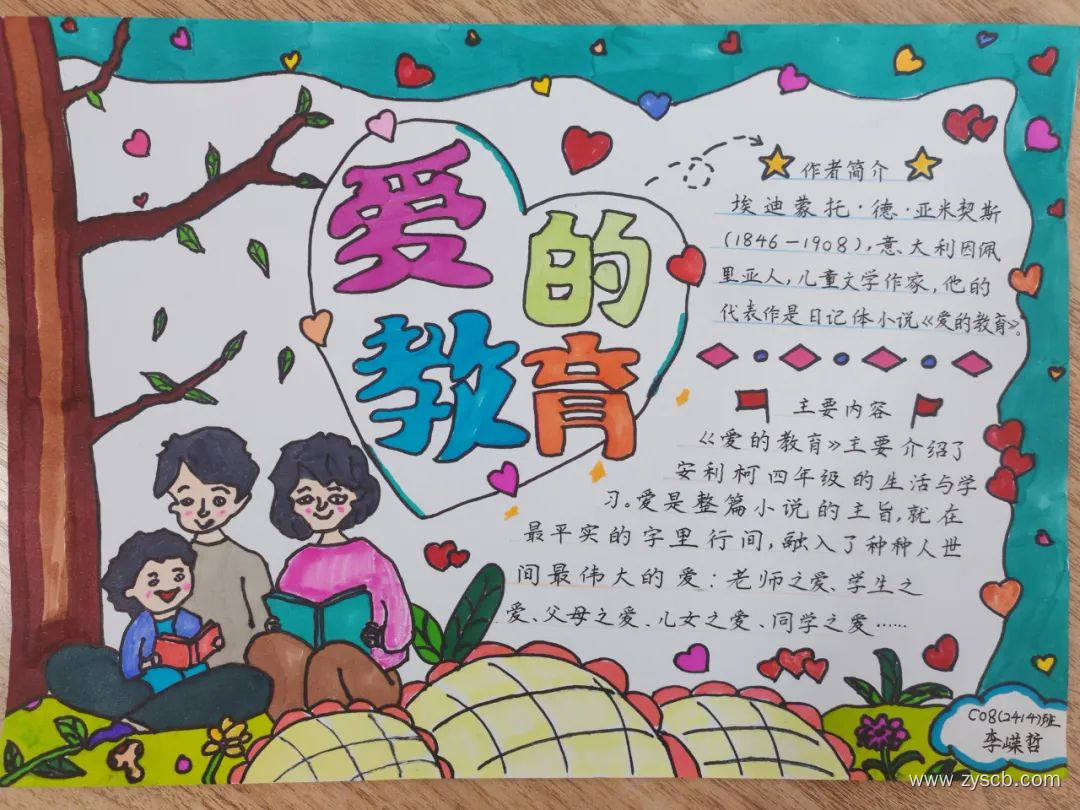 爱的
教育
作者简介
埃迪蒙托·德·亚米契斯
(1846-1908),意大利因佩
里亚人,儿童文学作家,他的
代表作是日记体小说《爱的教育》。
主要内容
《爱的教育》主要介绍了
安利柯四年级的生活与学
习。爱是整篇小说的主旨,就在
最平实的字里行间,融入了种种人世
间最伟大的爱:老师之爱、学生之
爱、父母之爱、儿女之爱、同学之爱……
C08(2414)班
李嵘哲
www.zyscb.com